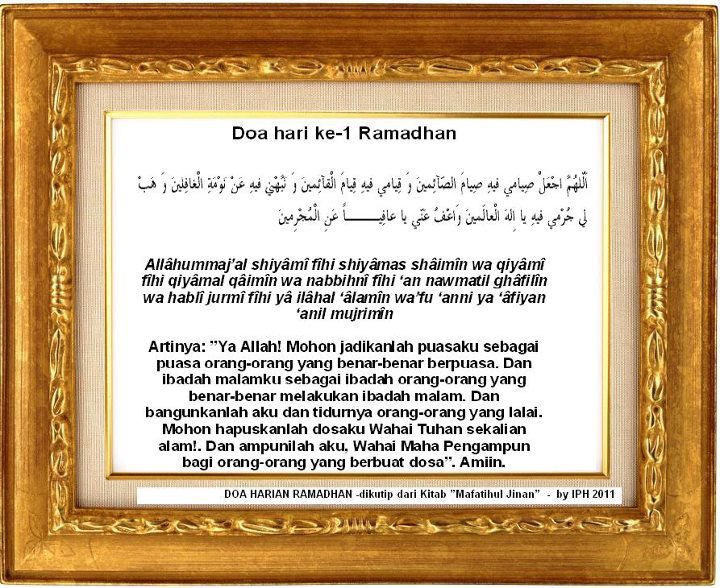 Doa hari ke-1 Ramadhan
اَللّهُمَّ اجْعَلْ صِيامي فيهِ صِيامَ الصّآئِمينَ وَ قِيامي فيهِ قِيامَ الْقآئِمينَ وَ نَبِّهْني فيهِ عَنْ نَوْمَةِ الْغافِلينَ وَ هَبْ
لي جُرْمي فيهِ يا اِلهَ الْعالَمينَ وَاعْفُ عَنّي يا عافِيــــــاً عَنِ الْمُجْرِمينَ
Allâhummaj’al shiyâmî fîhi shiyâmas shâimîn wa qiyâmî
fîhi qiyâmal qâimîn wa nabbihnî fîhi ‘an nawmatil ghâfilîn
wa hablî jurmî fîhi yâ ilâhal ‘âlamîn wa’fu ‘anni ya ‘âfiyan
‘anil mujrimîn
Artinya: ”Ya Allah! Mohon jadikanlah puasaku sebagai
puasa orang-orang yang benar-benar berpuasa. Dan
ibadah malamku sebagai ibadah orang-orang yang
benar-benar melakukan ibadah malam. Dan
bangunkanlah aku dan tidurnya orang-orang yang lalai.
Mohon hapuskanlah dosaku Wahai Tuhan sekalian
alam!. Dan ampunilah aku, Wahai Maha Pengampun
bagi orang-orang yang berbuat dosa”. Amiin.
DOA HARIAN RAMADHAN -dikutip dari Kitab ”Mafatihul Jinan” - by IPH 2011